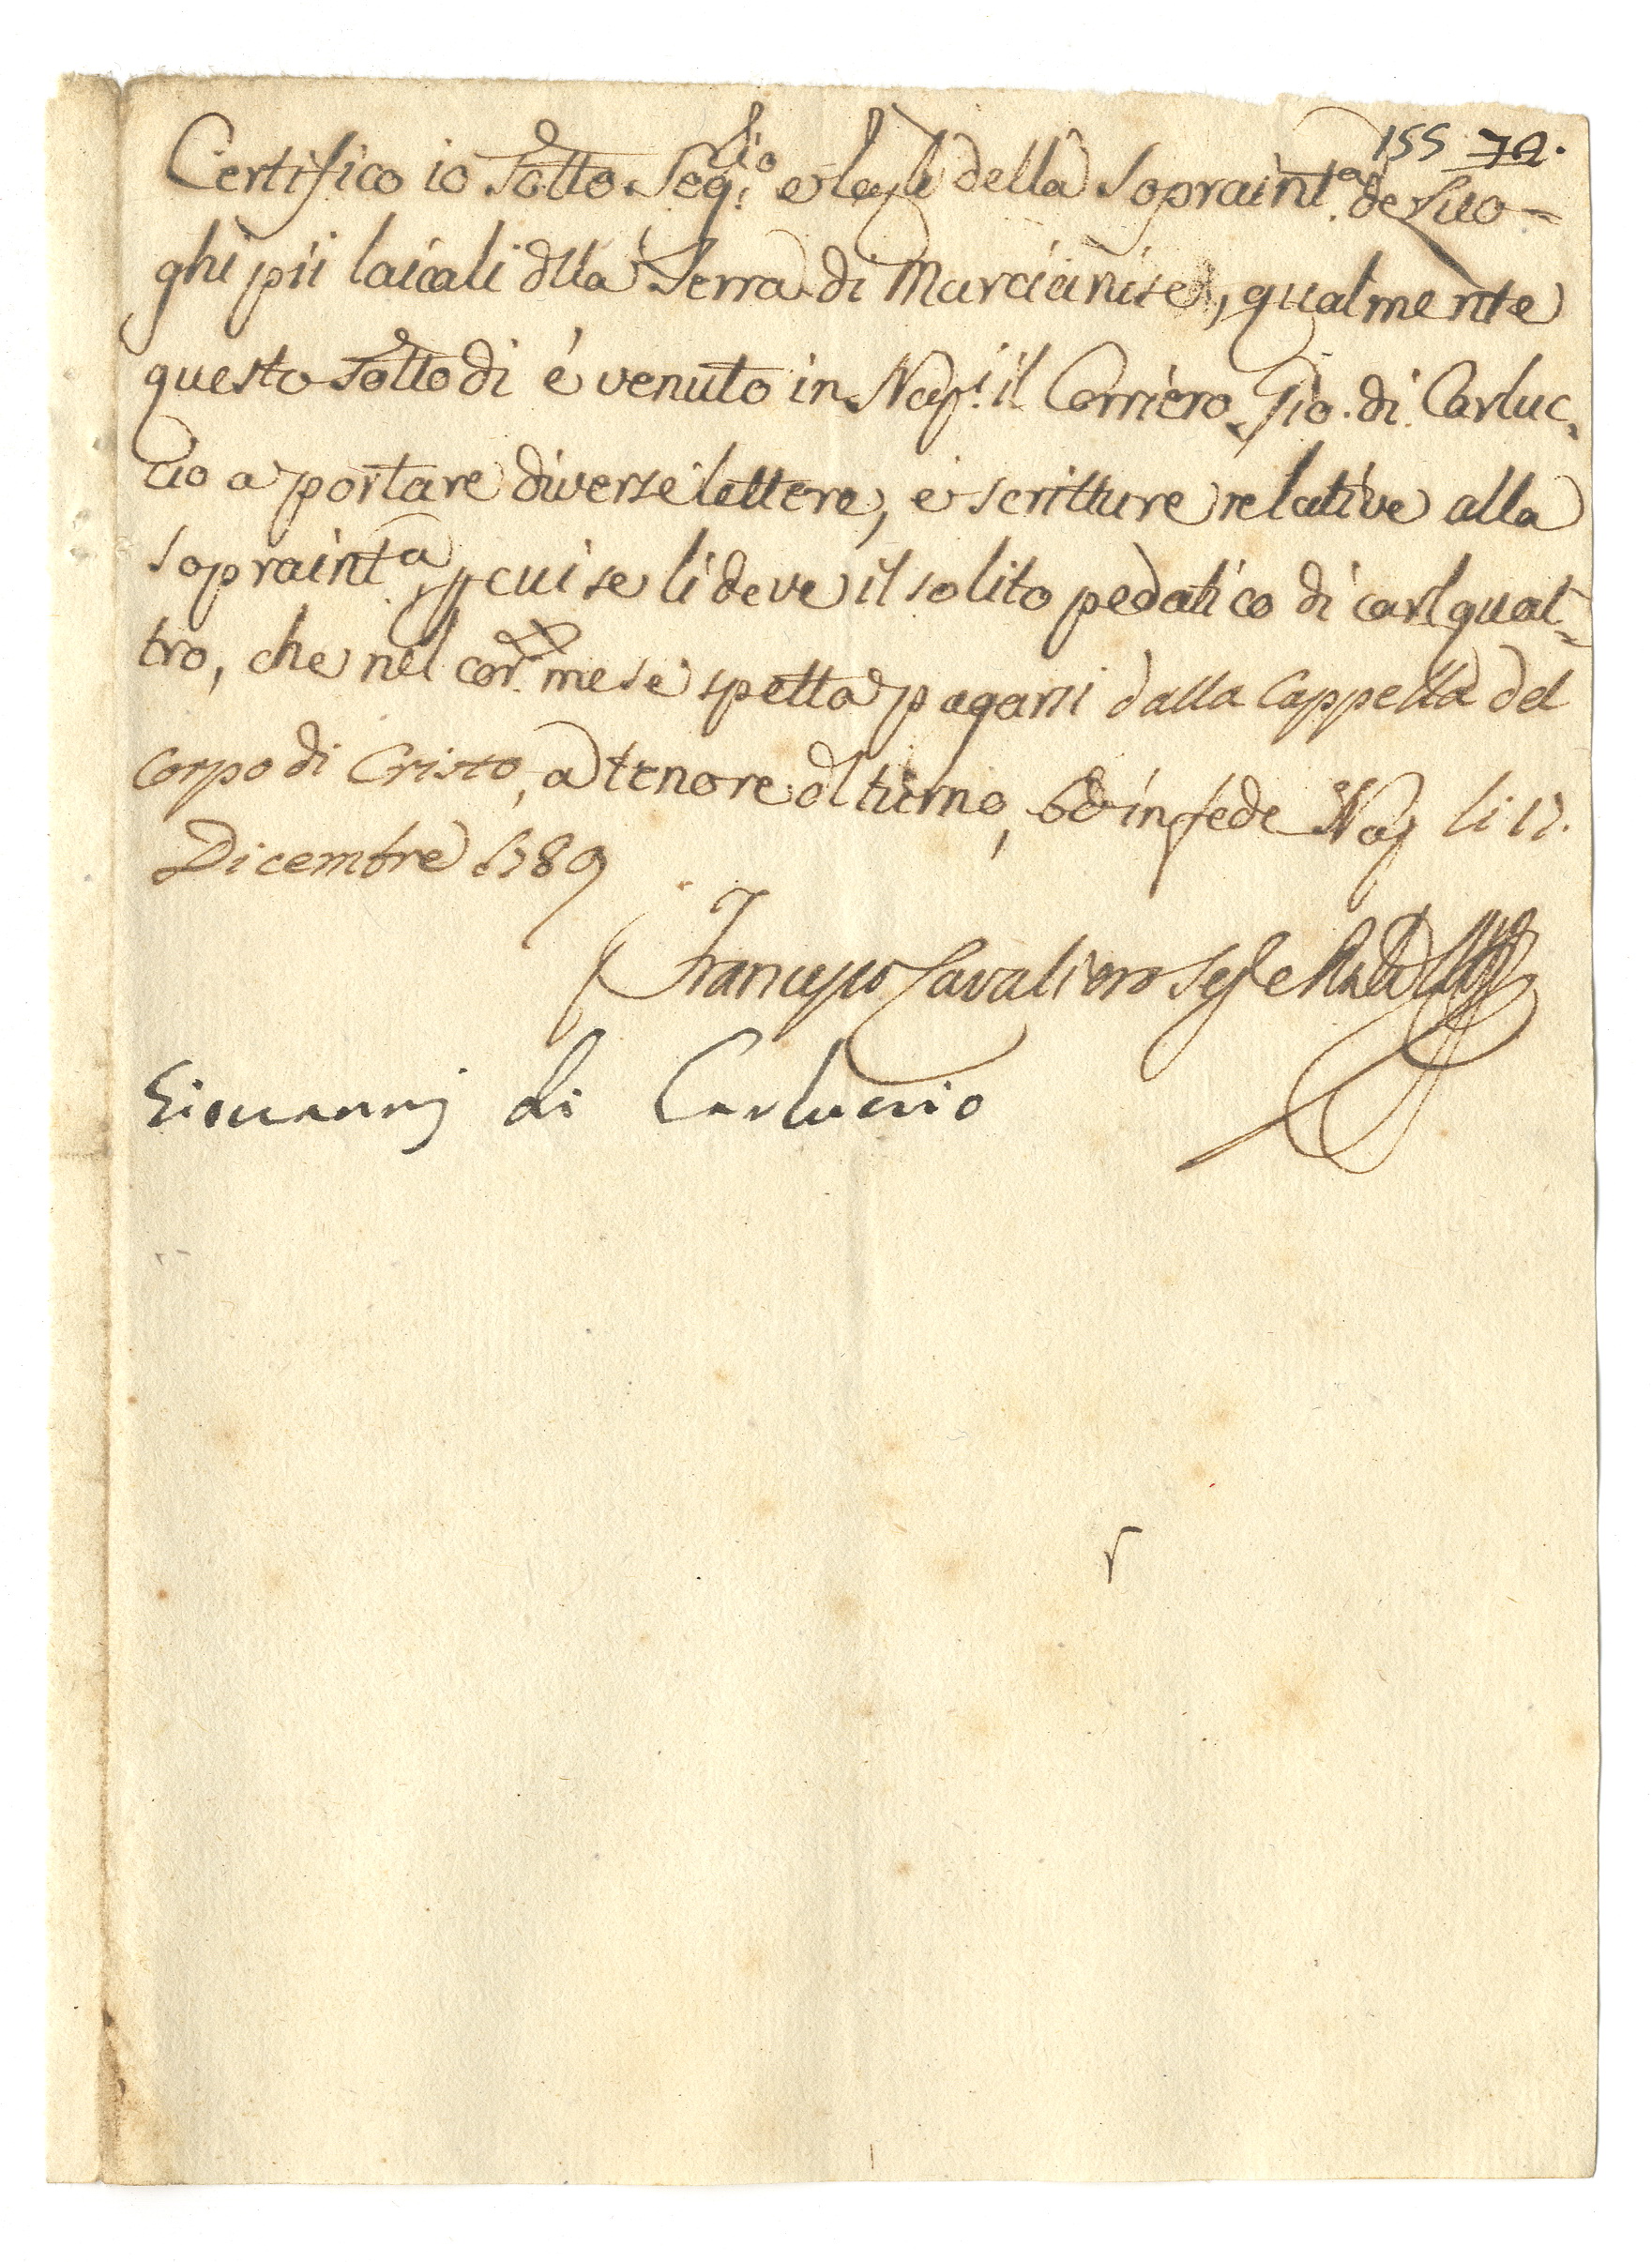 155 72.
Certifico io sotto Seg.rio e della Sopraint.a de Luo=
ghi pii laicali dlla Terra di Marcianise, qualmente
questo sotto dì è venuto in Nap.i il Corriero Gio. di Carluc=
cio a portare diverse lettere, e scritture relative alla
sopraint.a p cui se li deve il solito pedatico di carl quat=
tro, che nel cor.te mese spetta pagarsi dalla Cappella del
Corpo di Cristo, a tenore dl turno, ed in fede Nap li 17.
Dicembre 1789
Francesco Cavaliero Seg e
Giovanni di Carluccio